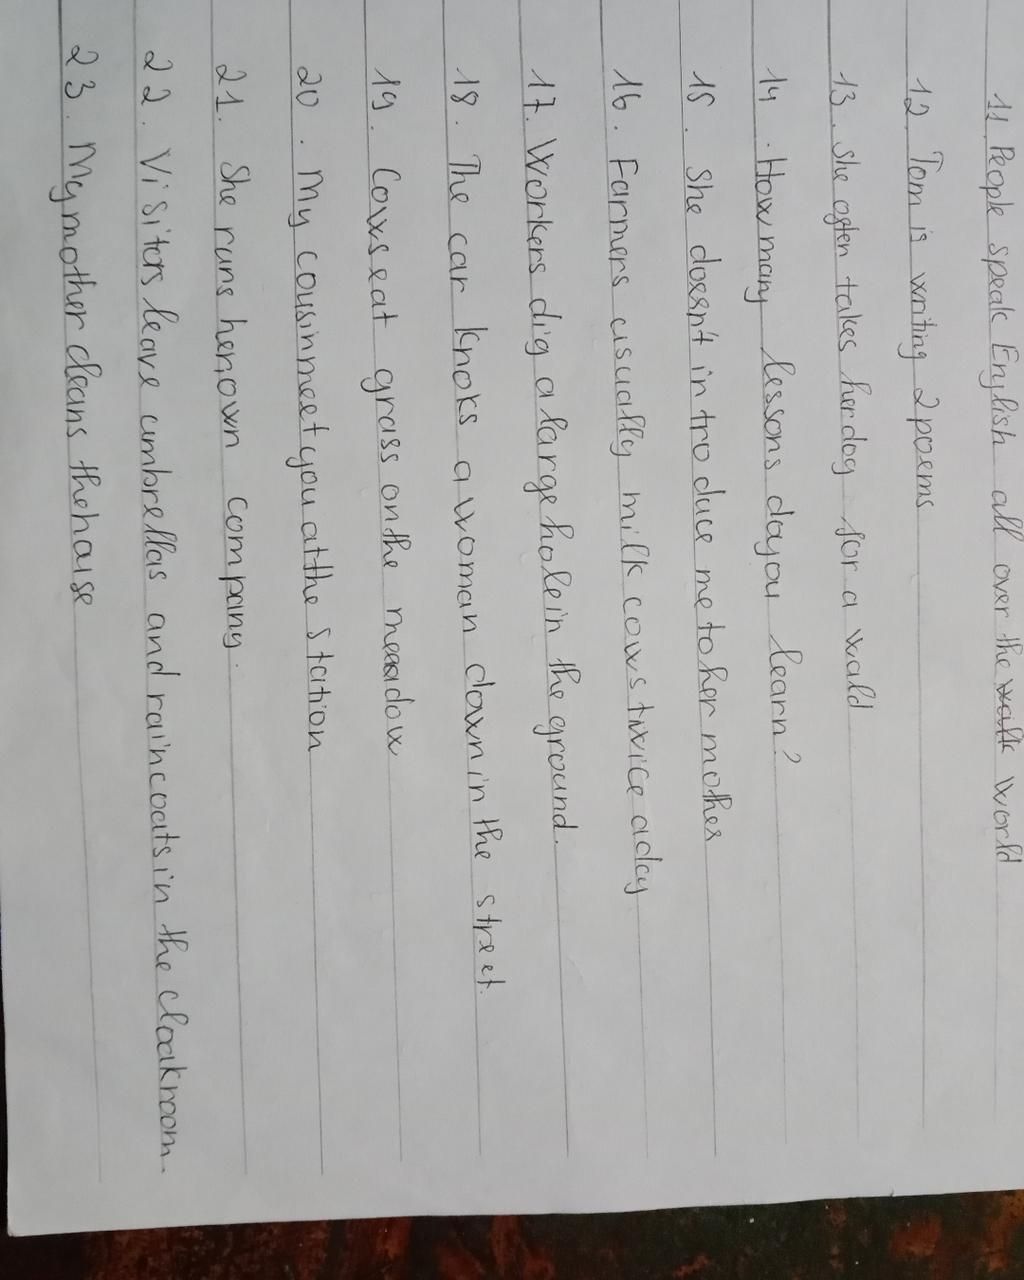 11. People speak English all over the world
12. Tom is writing 2 poems
13. She often takes her dog for a wald
14. How many lessons do you learn?
15. She doesn't introduce me to her mother
16. Farmers usually milk cows twice a day
17. Workers dig a large hole in the ground.
18. The car knoks a woman down in the street.
19. Cows eat grass on the meadow
20. My cousin meet you at the station
21. She runs her own company.
22. Visitors leave umbrellas and raincoats in the cloakroom.
23. My mother cleans the house